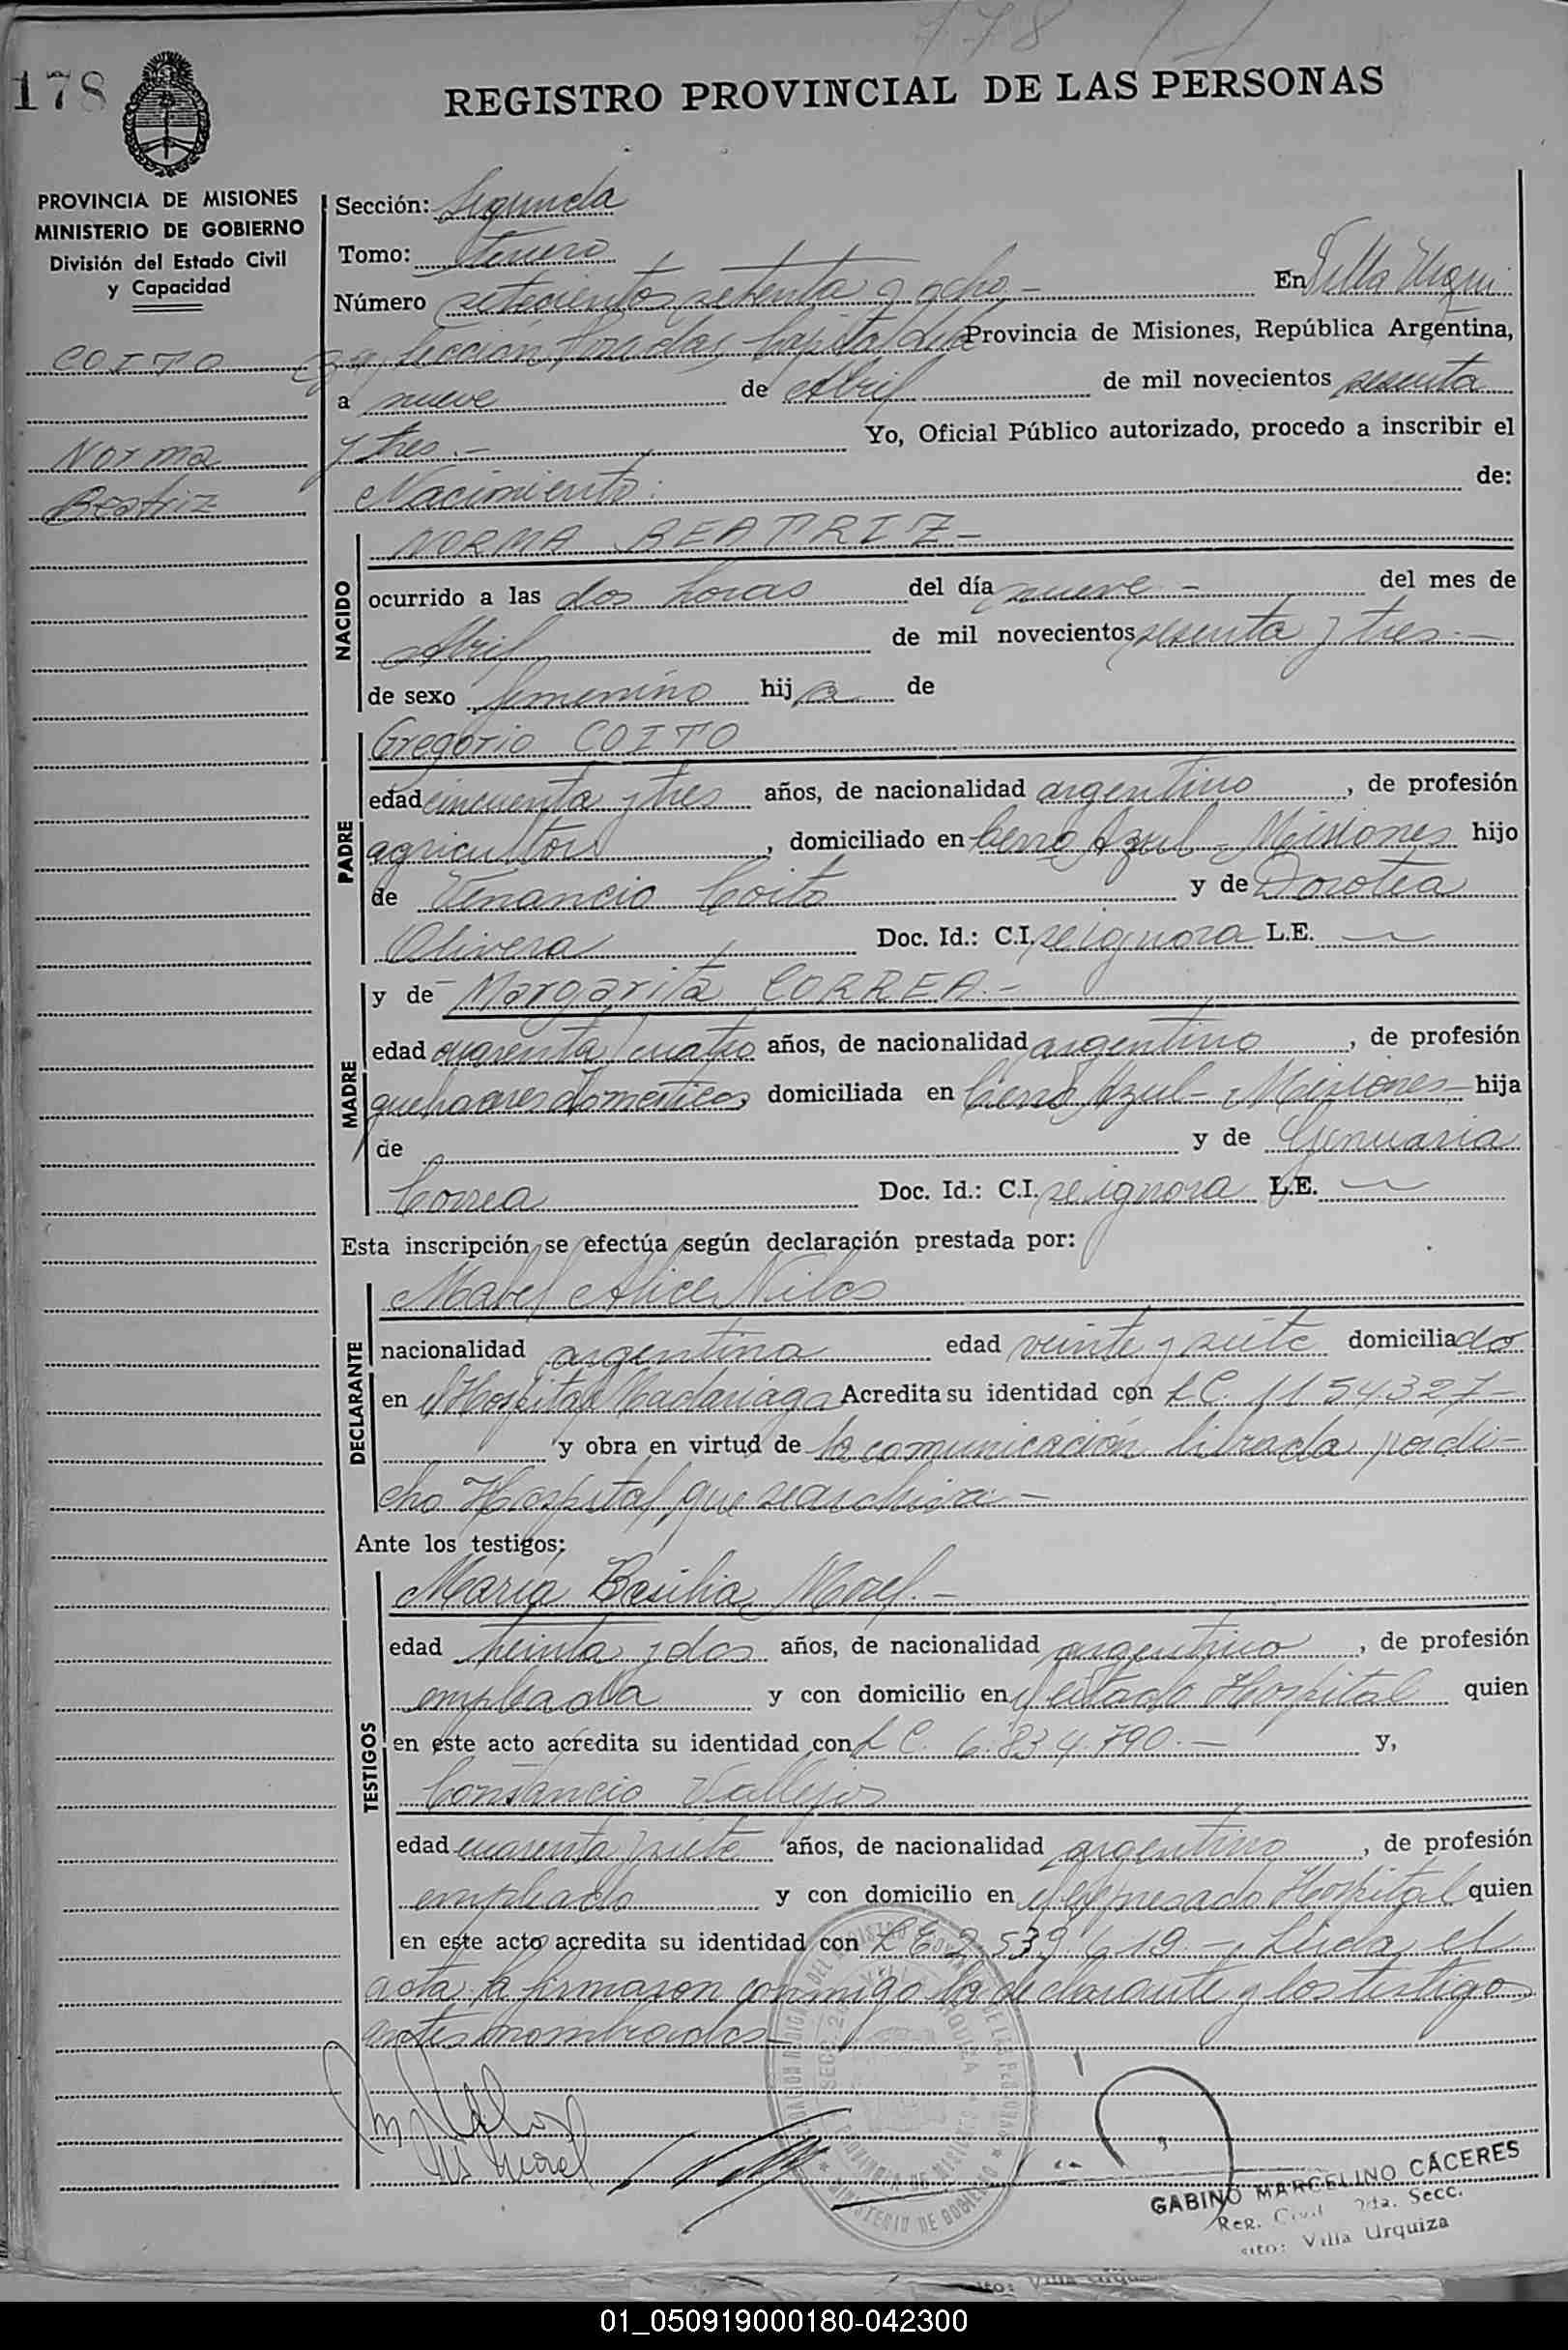 178
178
REGISTRO PROVINCIAL DE LAS PERSONAS
PROVINCIA DE MISIONES
MINISTERIO DE GOBIERNO
División del Estado Civil
y Capacidad
COITO
Norma
Beatriz
Sección: Segunda
Tomo: Tercero
Número setecientos setenta y ocho.- En Villa Urqui
za, Sección Posadas, Capital de la Provincia de Misiones, República Argentina,
a nueve de Abril de mil novecientos sesenta
y tres.- Yo, Oficial Público autorizado, procedo a inscribir el
Nacimiento. de:
NACIDO
NORMA BEATRIZ-
ocurrido a las dos horas del día nueve - del mes de
Abril de mil novecientos sesenta y tres.-
de sexo femenino hija de
PADRE
Gregorio COITO
edad cincuenta y tres años, de nacionalidad argentino, de profesión
agricultor, domiciliado en Cerro Azul - Misiones hijo
de Venancio Coito y de Dorotea
Olivera Doc. Id.: C.I. se ignora L.E.
MADRE
y de Margarita CORREA.-
edad cuarenta y cuatro años, de nacionalidad argentino, de profesión
quehaceres domesticos, domiciliada en Cerro Azul - Misiones hija
de y de Genuaria
Correa Doc. Id.: C.I. se ignora L.E.
Esta inscripción se efectúa según declaración prestada por:
DECLARANTE
Mabel Alice
nacionalidad argentina edad veinte y siete domiciliado
en el Hospital Madariaga Acredita su identidad con L C. 1154327-
y obra en virtud de la comunicación librada por di-
cho Hospital, que se archiva -
Ante los testigos:
TESTIGOS
María Basilia Morel.-
edad treinta y dos años, de nacionalidad argentino, de profesión
empleada y con domicilio en el citado Hospital quien
en este acto acredita su identidad con L C. 6.834.790.- y,
Constancio Vallejos
edad cuarenta y siete años, de nacionalidad argentino, de profesión
empleado y con domicilio en el expresado Hospital quien
en este acto acredita su identidad con L E 2.539.619.- Leida el
acta la firmaron conmigo la declarante y los testigos
antes nombrados-
GABINO MARCELINO CÁCERES
Reg. Civil 2da. Secc.
Villa Urquiza
01_050919000180-042300